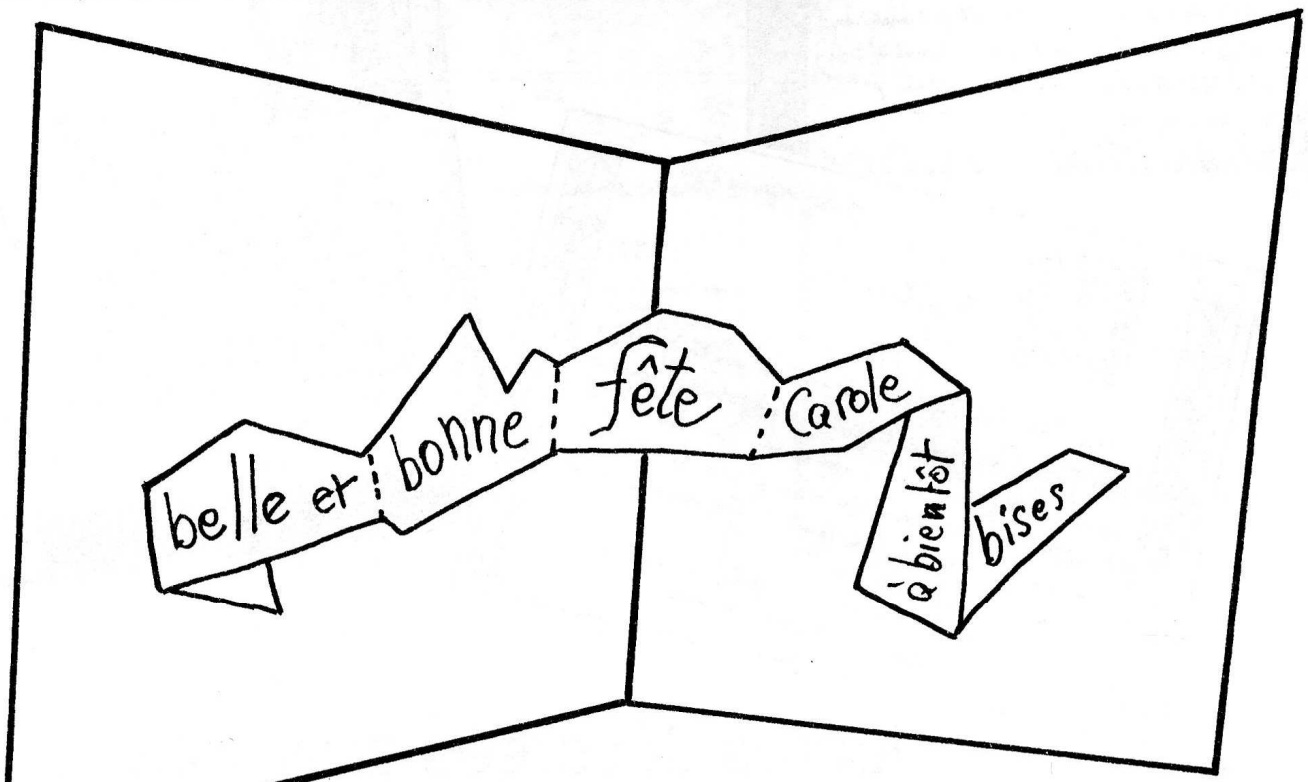 belle et
bonne
fête
Carole
à bientôt
bises